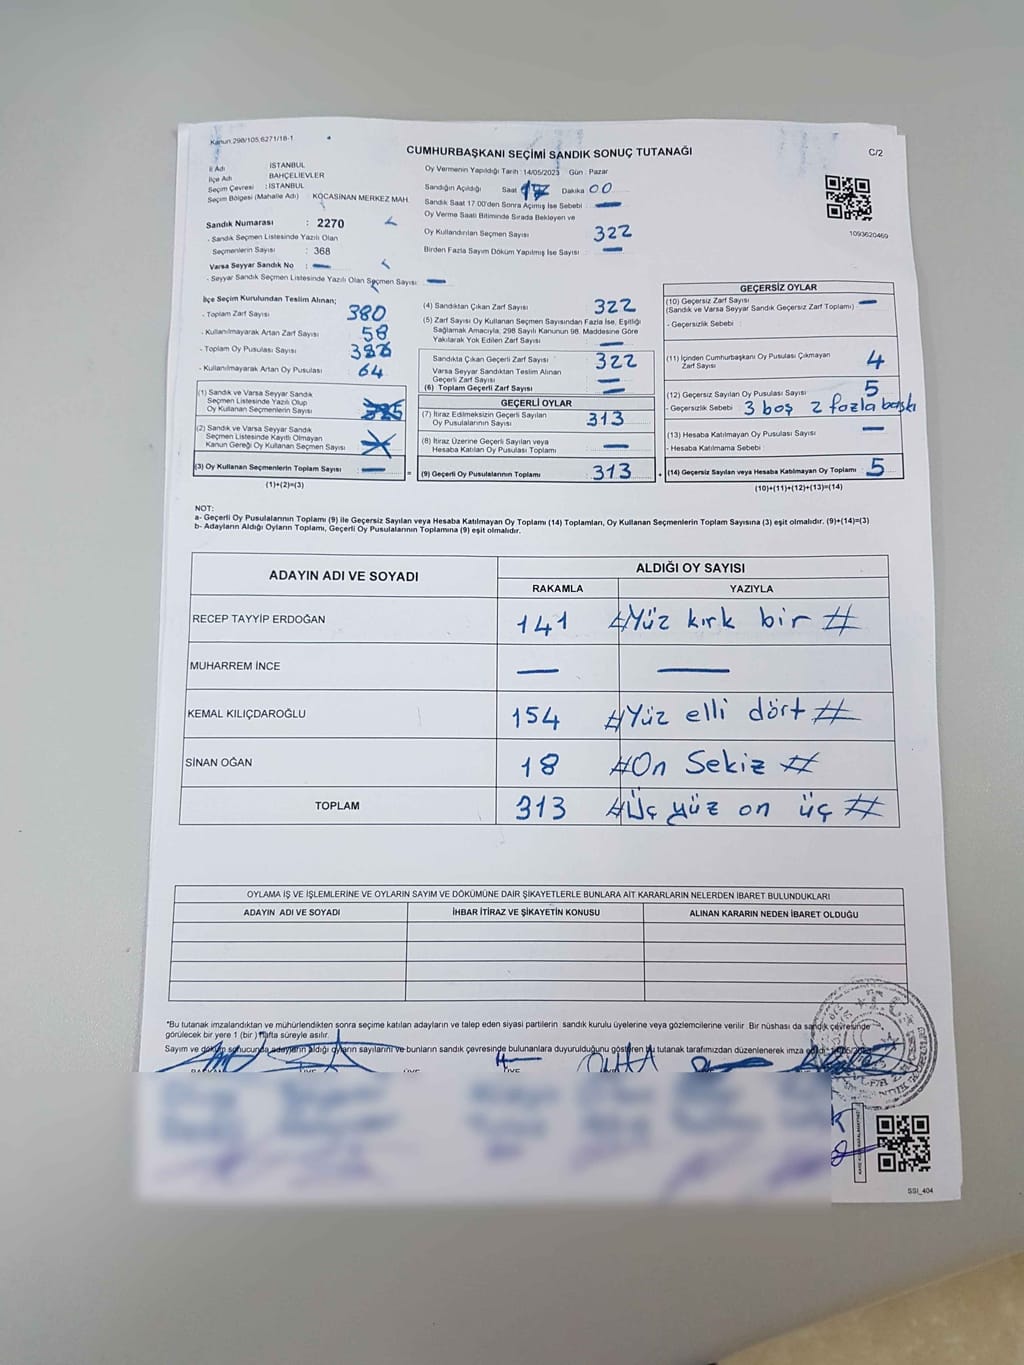 Kanun:298/105,6271/18-1
CUMHURBAŞKANI SEÇİMİ SANDIK SONUÇ TUTANAĞI
C/2
İl Adı : İSTANBUL
İlçe Adı : BAHÇELİEVLER
Seçim Çevresi : İSTANBUL
Seçim Bölgesi (Mahalle Adı) : KOCASİNAN MERKEZ MAH.
Sandık Numarası : 2270
- Sandık Seçmen Listesinde Yazılı Olan
Seçmenlerin Sayısı : 368
Varsa Seyyar Sandık No : —
- Seyyar Sandık Seçmen Listesinde Yazılı Olan Seçmen Sayısı : —
Oy Vermenin Yapıldığı Tarih : 14/05/2023 Gün : Pazar
Sandığın Açıldığı Saat 17 Dakika 00
Sandık Saat 17.00'den Sonra Açımış İse Sebebi : —
Oy Verme Saati Bitiminde Sırada Bekleyen ve
Oy Kullandırılan Seçmen Sayısı 322
Birden Fazla Sayım Döküm Yapılmış İse Sayısı —
1093620469
İlçe Seçim Kurulundan Teslim Alınan;
- Toplam Zarf Sayısı 380
- Kullanılmayarak Artan Zarf Sayısı 58
- Toplam Oy Pusulası Sayısı
- Kullanılmayarak Artan Oy Pusulası 64
(1) Sandık ve Varsa Seyyar Sandık
Seçmen Listesinde Yazılı Olup
Oy Kullanan Seçmenlerin Sayısı
(2) Sandık ve Varsa Seyyar Sandık
Seçmen Listesinde Kayıtlı Olmayan
Kanun Gereği Oy Kullanan Seçmen Sayısı
(3) Oy Kullanan Seçmenlerin Toplam Sayısı —
(1)+(2)=(3)
(4) Sandıktan Çıkan Zarf Sayısı 322
(5) Zarf Sayısı Oy Kullanan Seçmen Sayısından Fazla İse, Eşitliği
Sağlamak Amacıyla; 298 Sayılı Kanunun 98. Maddesine Göre
Yakılarak Yok Edilen Zarf Sayısı —
Sandıkta Çıkan Geçerli Zarf Sayısı 322
Varsa Seyyar Sandıktan Teslim Alınan
Geçerli Zarf Sayısı —
(6) Toplam Geçerli Zarf Sayısı —
GEÇERLİ OYLAR
(7) İtiraz Edilmeksizin Geçerli Sayılan
Oy Pusulalarının Sayısı 313
(8) İtiraz Üzerine Geçerli Sayılan veya
Hesaba Katılan Oy Pusulası Toplamı —
(9) Geçerli Oy Pusulalarının Toplamı 313
GEÇERSİZ OYLAR
(10) Geçersiz Zarf Sayısı —
(Sandık ve Varsa Seyyar Sandık Geçersiz Zarf Toplamı)
- Geçersizlik Sebebi :
(11) İçinden Cumhurbaşkanı Oy Pusulası Çıkmayan
Zarf Sayısı 4
(12) Geçersiz Sayılan Oy Pusulası Sayısı 5
- Geçersizlik Sebebi 3 boş 2 fazla baskı
(13) Hesaba Katılmayan Oy Pusulası Sayısı —
- Hesaba Katılmama Sebebi :
(14) Geçersiz Sayılan veya Hesaba Katılmayan Oy Toplamı 5
(10)+(11)+(12)+(13)=(14)
NOT:
a- Geçerli Oy Pusulalarının Toplamı (9) ile Geçersiz Sayılan veya Hesaba Katılmayan Oy Toplamı (14) Toplamları, Oy Kullanan Seçmenlerin Toplam Sayısına (3) eşit olmalıdır. (9)+(14)=(3)
b- Adayların Aldığı Oyların Toplamı, Geçerli Oy Pusulalarının Toplamına (9) eşit olmalıdır.
ADAYIN ADI VE SOYADI ALDIĞI OY SAYISI
RAKAMLA YAZIYLA
RECEP TAYYİP ERDOĞAN 141 #Yüz kırk bir #
MUHARREM İNCE — —
KEMAL KILIÇDAROĞLU 154 #Yüz elli dört #
SİNAN OĞAN 18 #On Sekiz #
TOPLAM 313 #Üç yüz on üç #
OYLAMA İŞ VE İŞLEMLERİNE VE OYLARIN SAYIM VE DÖKÜMÜNE DAİR ŞİKAYETLERLE BUNLARA AİT KARARLARIN NELERDEN İBARET BULUNDUKLARI
ADAYIN ADI VE SOYADI İHBAR İTİRAZ VE ŞİKAYETİN KONUSU ALINAN KARARIN NEDEN İBARET OLDUĞU
"Bu tutanak imzalandıktan ve mühürlendikten sonra seçime katılan adayların ve talep eden siyasi partilerin sandık kurulu üyelerine veya gözlemcilerine verilir. Bir nüshası da sandık çevresinde
görülecek bir yere 1 (bir) hafta süreyle asılır.
Sayım ve döküm sonucunda adayların aldığı oyların sayılarını ve bunların sandık çevresinde bulunanlara duyurulduğunu gösteren bu tutanak tarafımızdan düzenlenerek imza edildi.
SSI_404